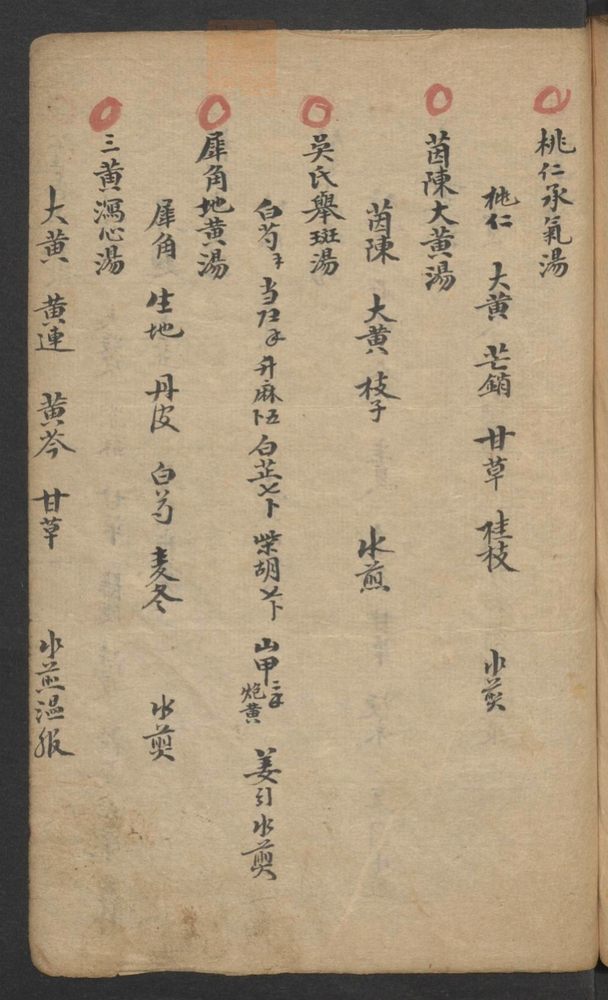 桃仁承氣湯
桃仁 大黄 芒硝 甘草 桂枝 水煎
茵陳大黄湯
茵陳 大黄 枝子 水煎
吳氏舉斑湯
白芍 当归 升麻 白芷 柴胡 山甲 炮黄 姜引水煎
犀角地黄湯
犀角 生地 丹皮 白芍 麦冬 水煎
三黄瀉心湯
大黄 黄連 黄芩 甘草 水煎温服